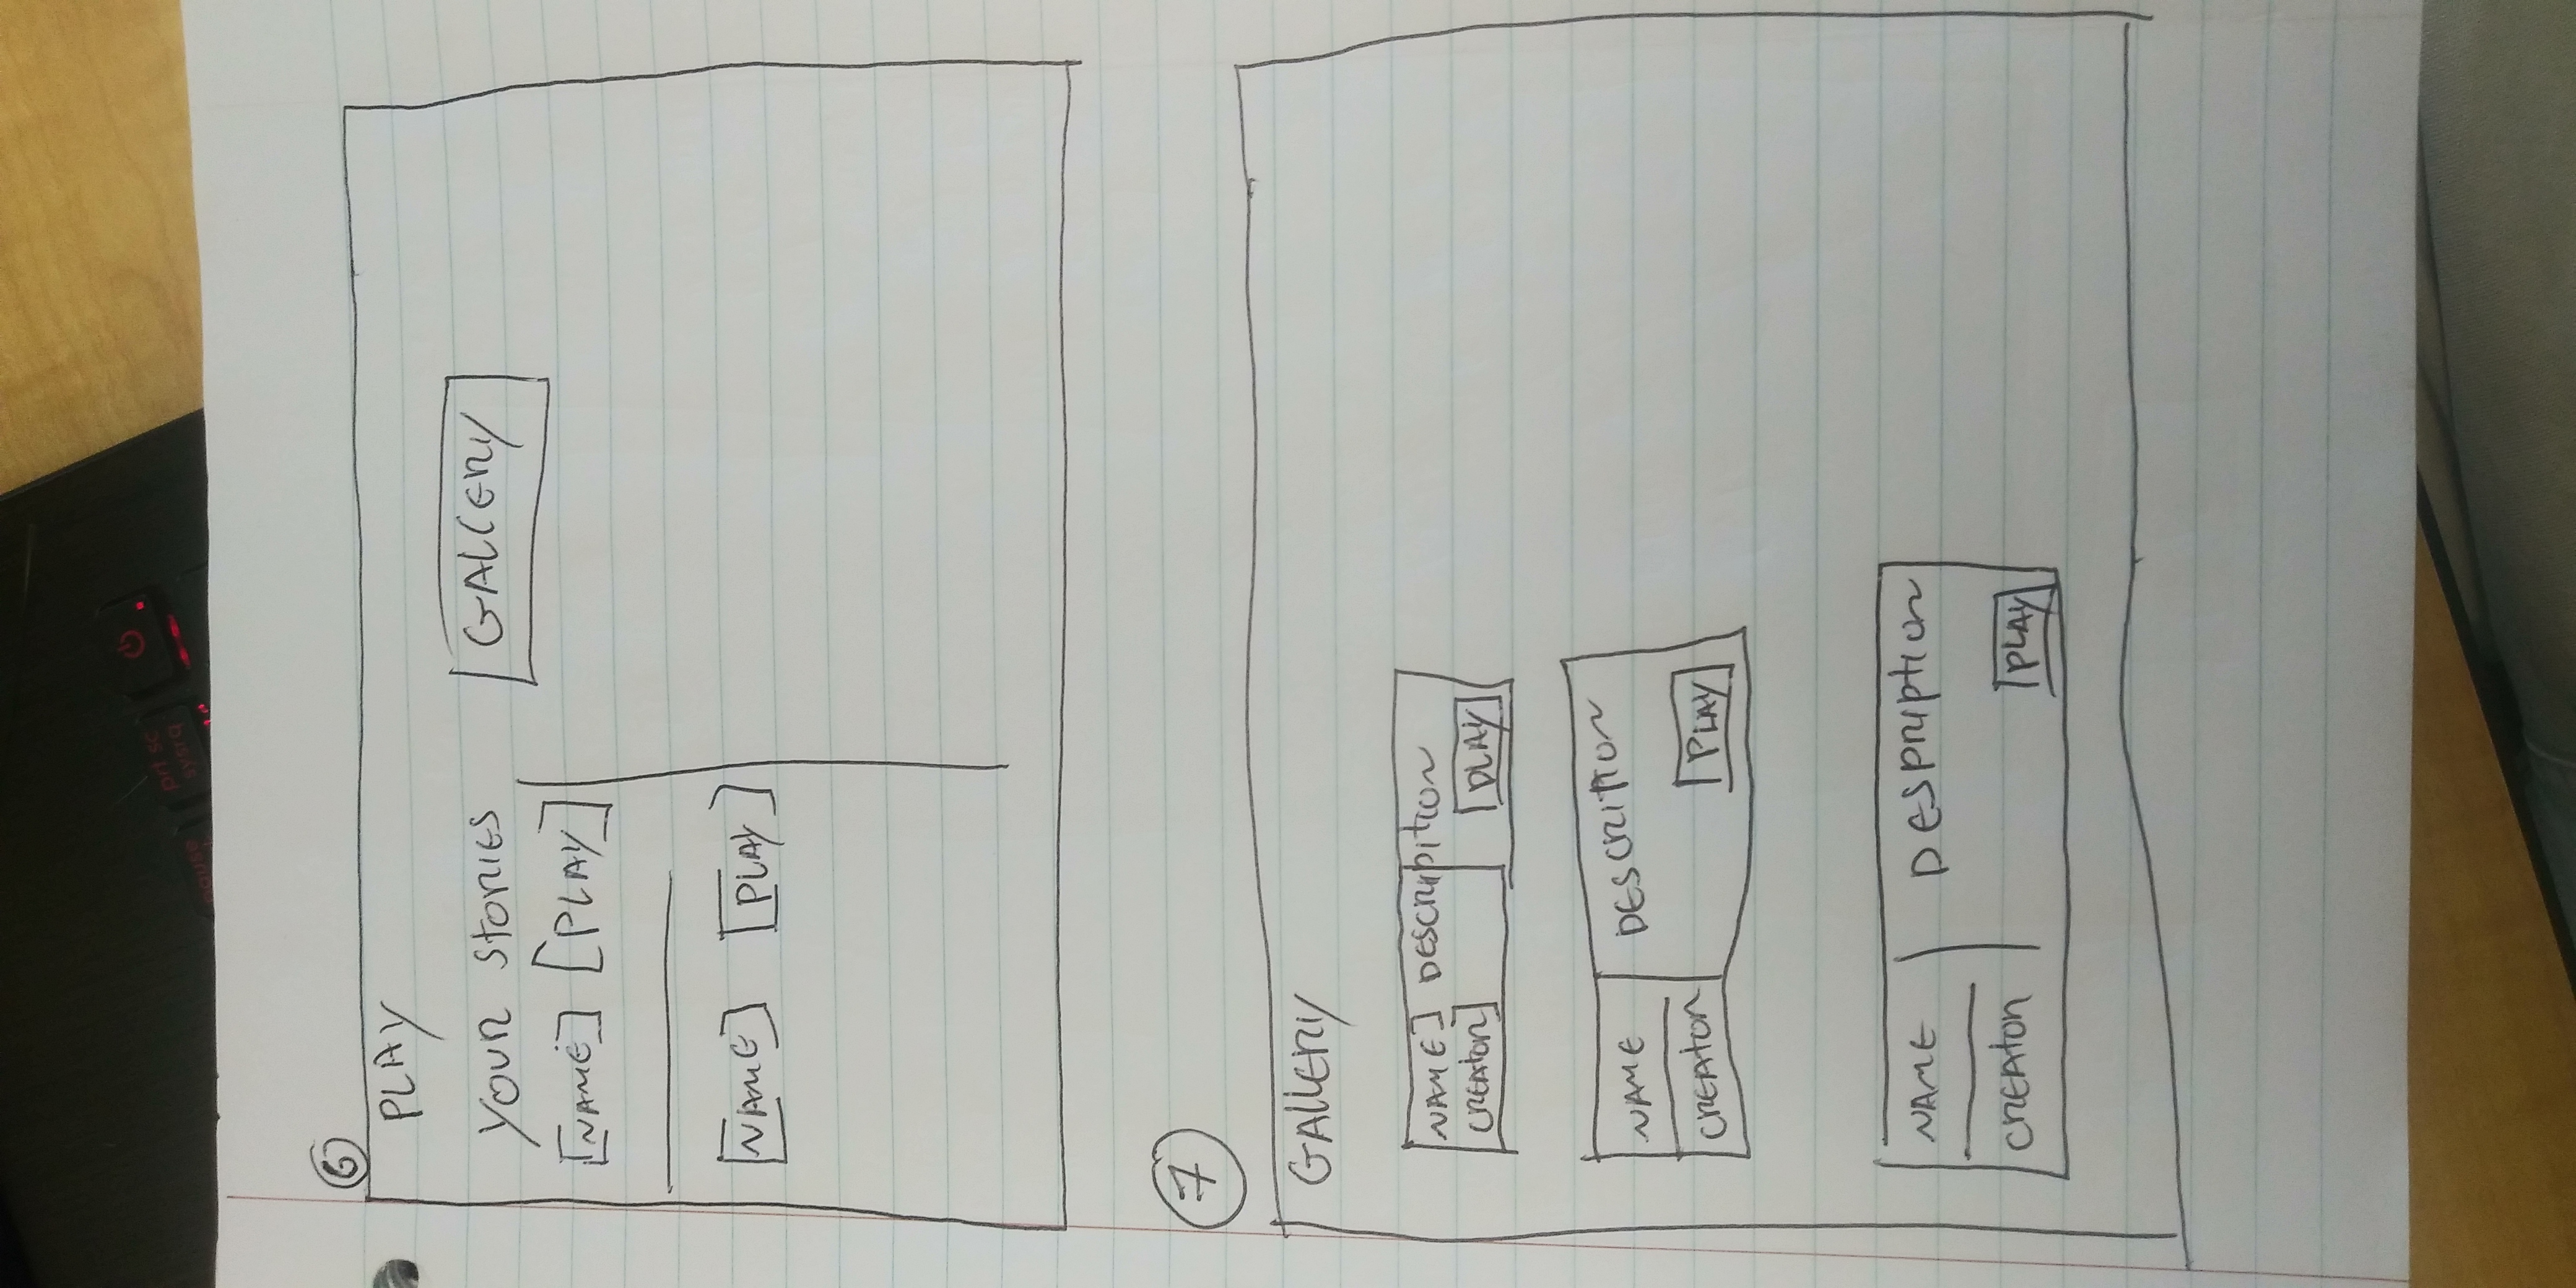 pause
prt sc
sysrq
6
PLAY
YOUR STORIES
GALLERY
[NAME] [PLAY]
[NAME] [PLAY]
7
GALLERY
NAME] DESCRIPITION
CREATOR] PLAY
NAME DESCRIPTION
CREATOR PLAY
NAME DESPRIPTION
CREATOR PLAY